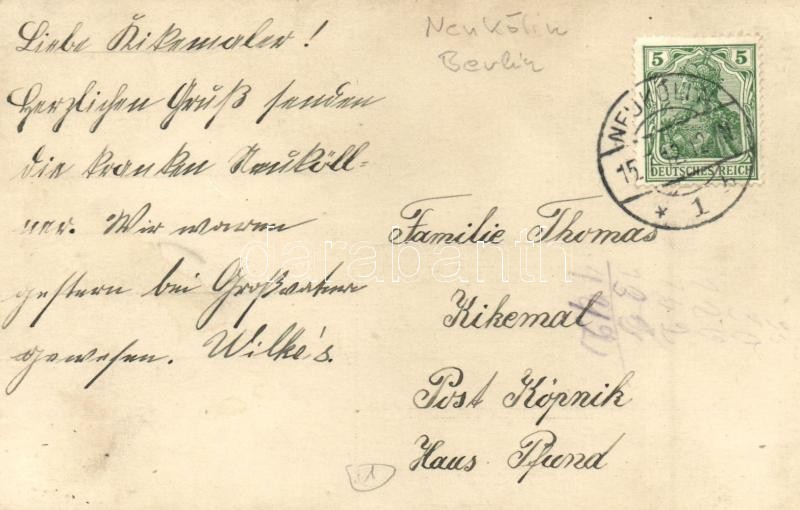 Liebe Kikemaler!
Herzlichen Gruß senden
die kranken Neuköll-
ner. Wir waren
gestern bei Großvatern
gewesen. Wilke's.
Neukölln
Berlin
5 5
DEUTSCHES REICH
NEUKÖLLN
15.
* 1
Familie Thomas
Kikemal
Post Köpnik
Haus Pfund
darabanth
1